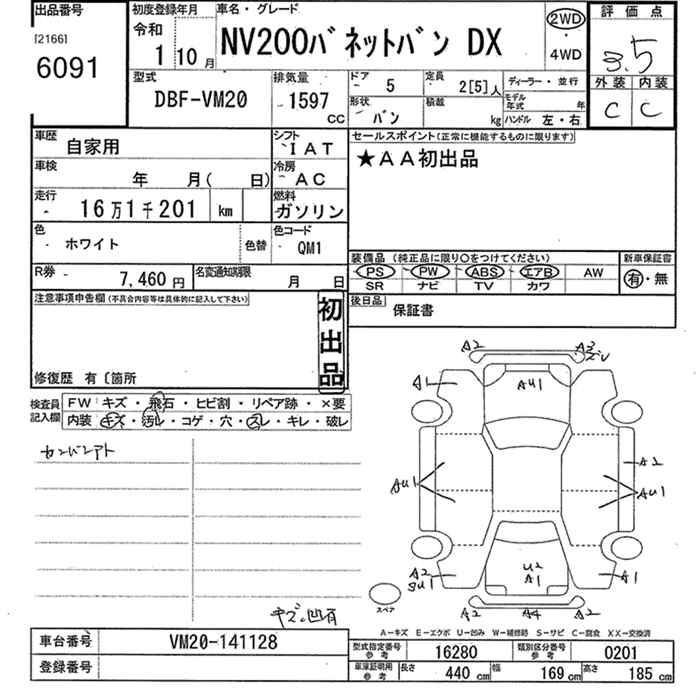 出品番号
[2166]
6091
初度登録年月
令和
1 10月
車名・グレード
NV200バネットバン DX
2WD
・
4WD
評価点
3.5
外装 内装
C C
型式
DBF-VM20
排気量
1597
CC
ドア
5
定員
2[5]人
形状
バン
積載
kg
ディーラー・並行
モデル年式
年
ハンドル 左・右
車歴
自家用
シフト
IAT
車検
年 月( 日)
冷房
AC
走行
16万1千201 km
燃料
ガソリン
色
ホワイト
色替
色コード
QM1
R券
7,460円
名変通知期限
月 日
セールスポイント(正常に機能するものに限ります)
★AA初出品
装備品 (純正品に限り○をつけてください)
PS PW ABS エアB AW
SR ナビ TV カワ
新車保証書
有・無
後日品
保証書
注意事項申告欄(不具合内容等は具体的に記入して下さい)
初出品
修復歴 有〔箇所
検査員記入欄
FW キズ・飛石・ヒビ割・リペア跡・×要
内装 キズ・汚レ・コゲ・穴・スレ・キレ・破レ
カンバンアト
キズ凹有
A2
A3
ズレ
A1
AU1
AU1
A2
AU1
A2
SU1
U2
A1
A1
A2
A4
A2
スペア
A-キズ E-エクボ U-凹み W-補修跡 S-サビ C-腐食 XX-交換済
車台番号
VM20-141128
登録番号
型式指定番号
参考
16280
類別区分番号
参考
0201
車庫証明用
参考
長さ
440 cm
幅
169 cm
高さ
185 cm